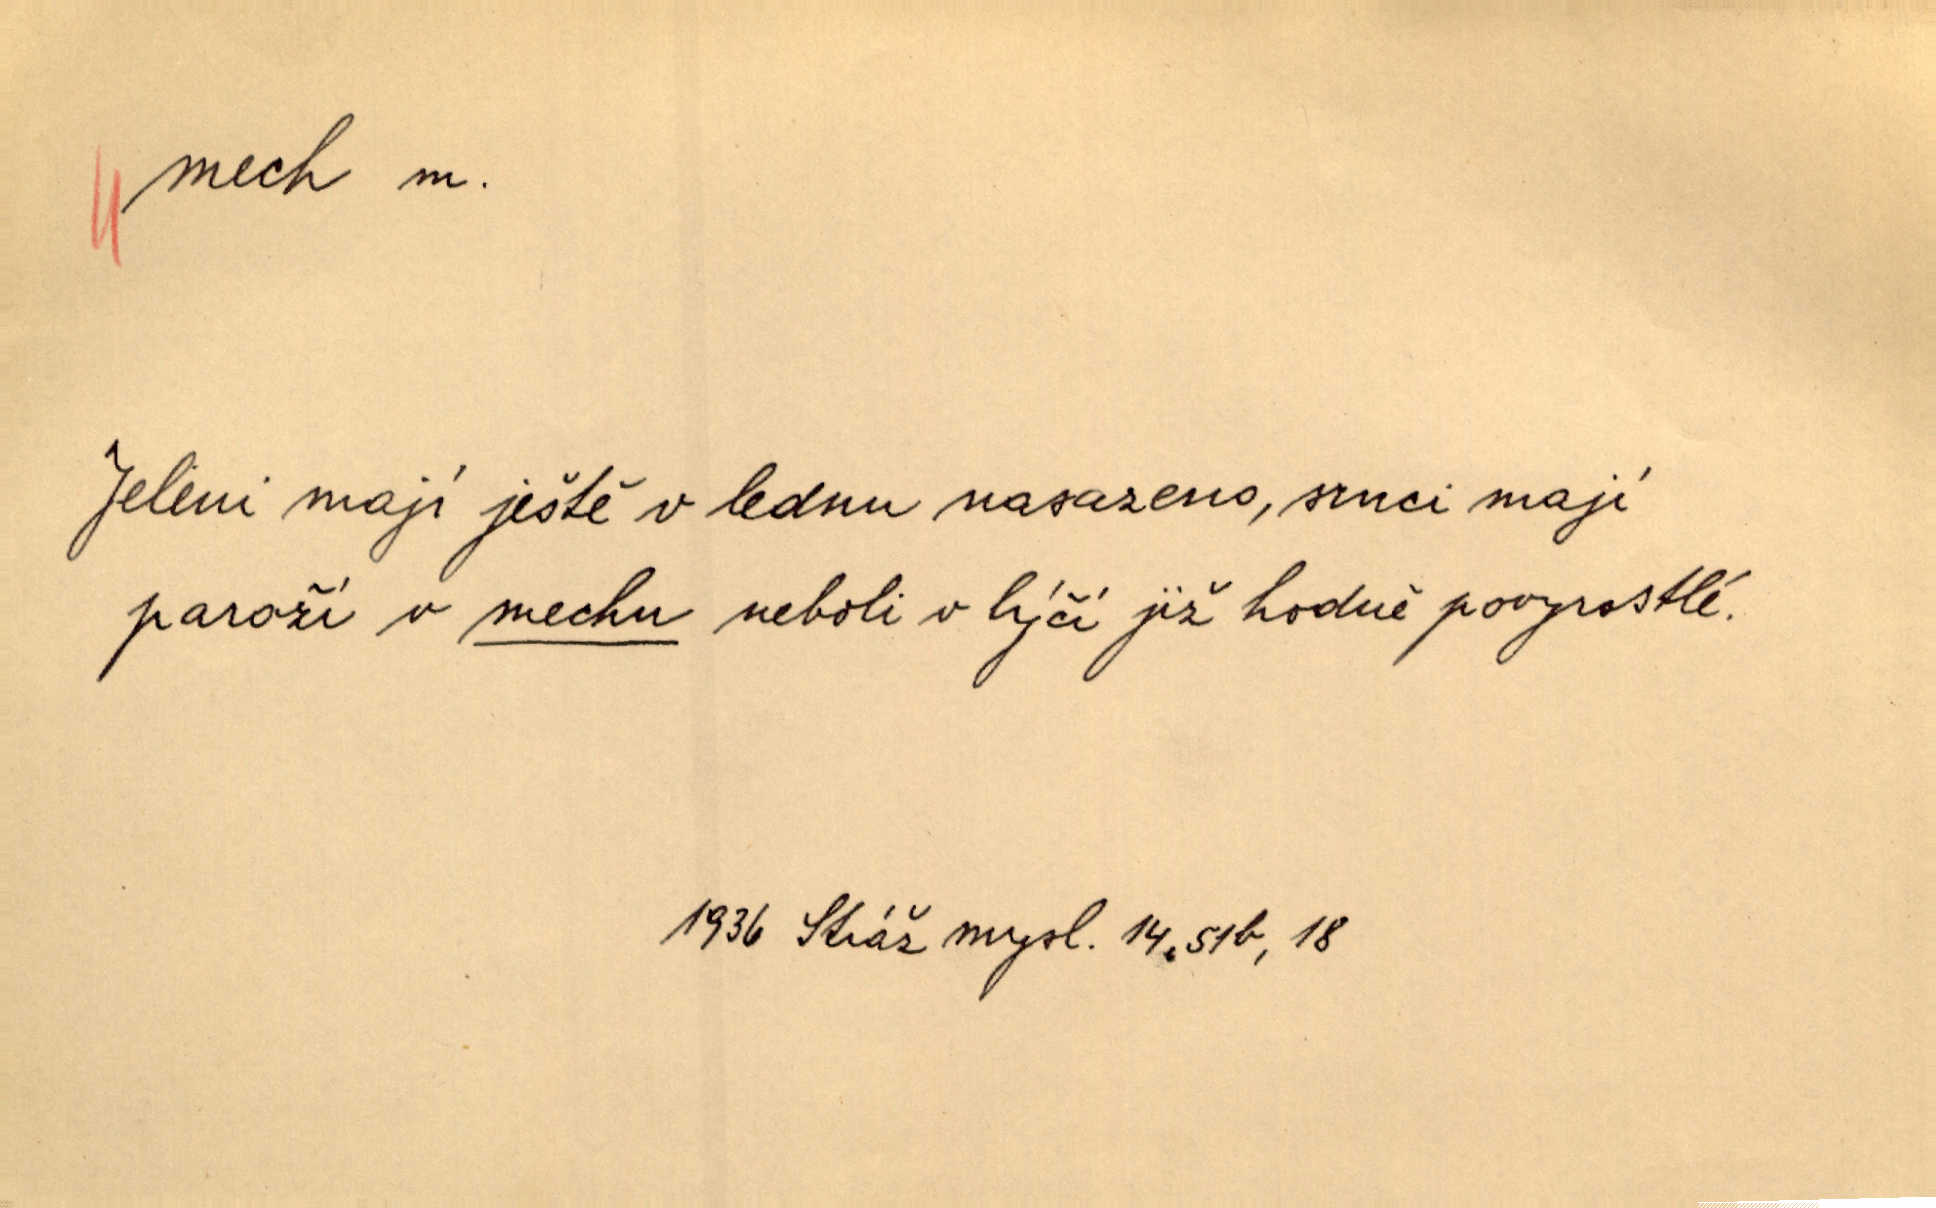 mech m.
Jeleni mají ještě v lednu nasazeno, srnci mají
paroží v mechu neboli v lýčí již hodně povyrostlé.
1936 Stráž mysl. 14, 51b, 18